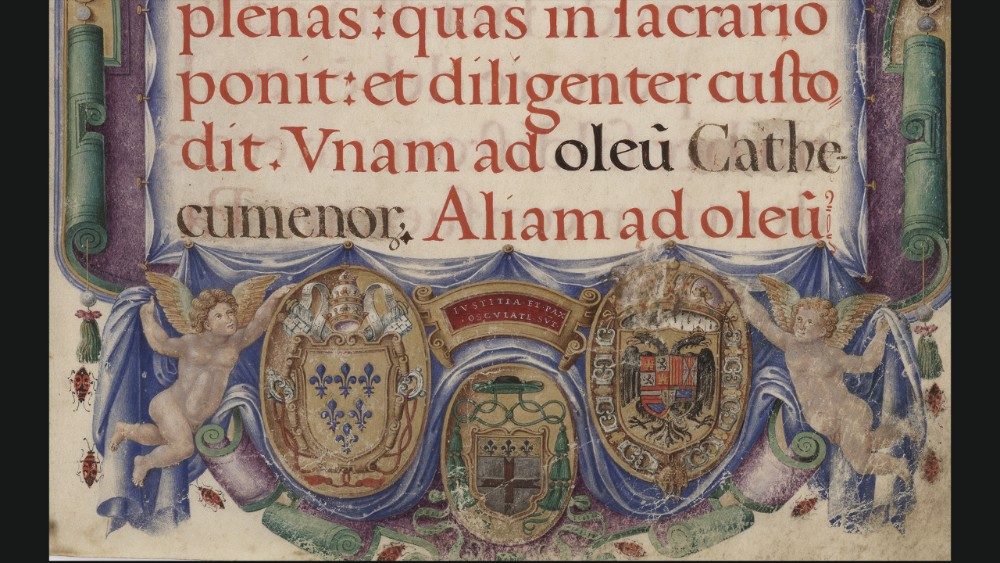 plenas: quas in sacrario
ponit: et diligenter custo
dit. Vnam ad oleū Cathe-
cumenor. Aliam ad oleū
IVSTITIA ET PAX
OSCVLATE SVT